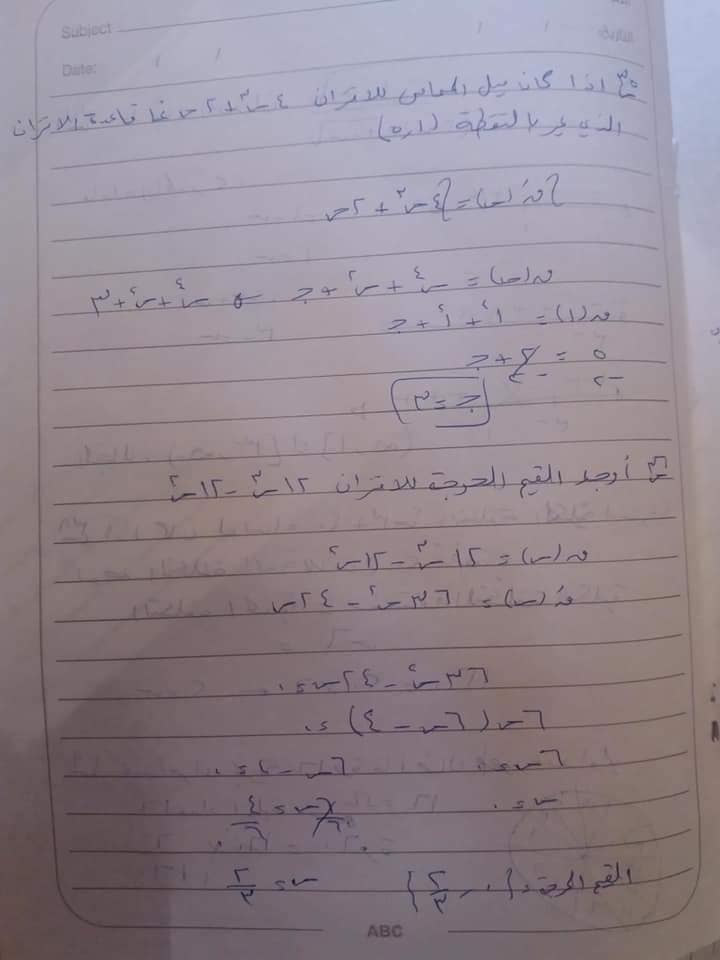 Subject
التاريخ:
Date: / /
/ /
٣٥ اذا كان ميل المماس للاقتران ٤س٣ + ٢س فما قاعدة الاقتران
الذي يمر بالنقطة (١،٥)
قَ(س) = ٤س٣ + ٢س
ق(س) = س٤ + س٢ + جـ ← س٤ + س٢ + ٣
ق(١) = ١٤ + ١٢ + جـ
٥ = ٢ + جـ
-٢ -٢
جـ = ٣
٣٦ أوجد القيم الحرجة للاقتران ١٢س٣ - ١٢س٢
ق(س) = ١٢س٣ - ١٢س٢
قَ(س) = ٣٦س٢ - ٢٤س
٣٦س٢ - ٢٤س = ٠
٦س (٦س - ٤) = ٠
٦س = ٠ ٦س - ٤ = ٠
س = ٠ ٦س/٦ = ٤/٦
القيم الحرجة = {٠ ، ٢/٣} س = ٢/٣
ABC